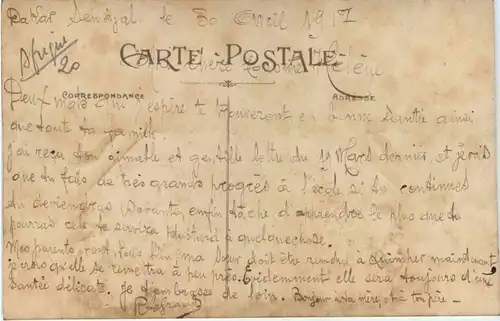 Dakar Sénégal le 30 Avril 1917
Afrique
20
CARTE POSTALE
chère Hélène
CORRESPONDANCE
ADRESSE
Deux mots qui j'espère te trouveront en bonne santée ainsi
que toute ta famille
J'ai reçu ton aimable et gentille lettre du 9 Mars dernier, et je vois
que tu fais de très grands progrès à l'école si tu continues
tu deviendras savante, enfin tâche d'apprendre le plus que tu
pourras cela te servira plustard à quelquechose.
Mes parents vont tous bien, ma sœur doit être rendu à Quimper maintenant,
je crois qu'elle se remettra à peu près. Évidemment elle sera toujours d'une
santée délicate. Je t'embrasse de loin. Bonjour a ta mère, et à ton père -